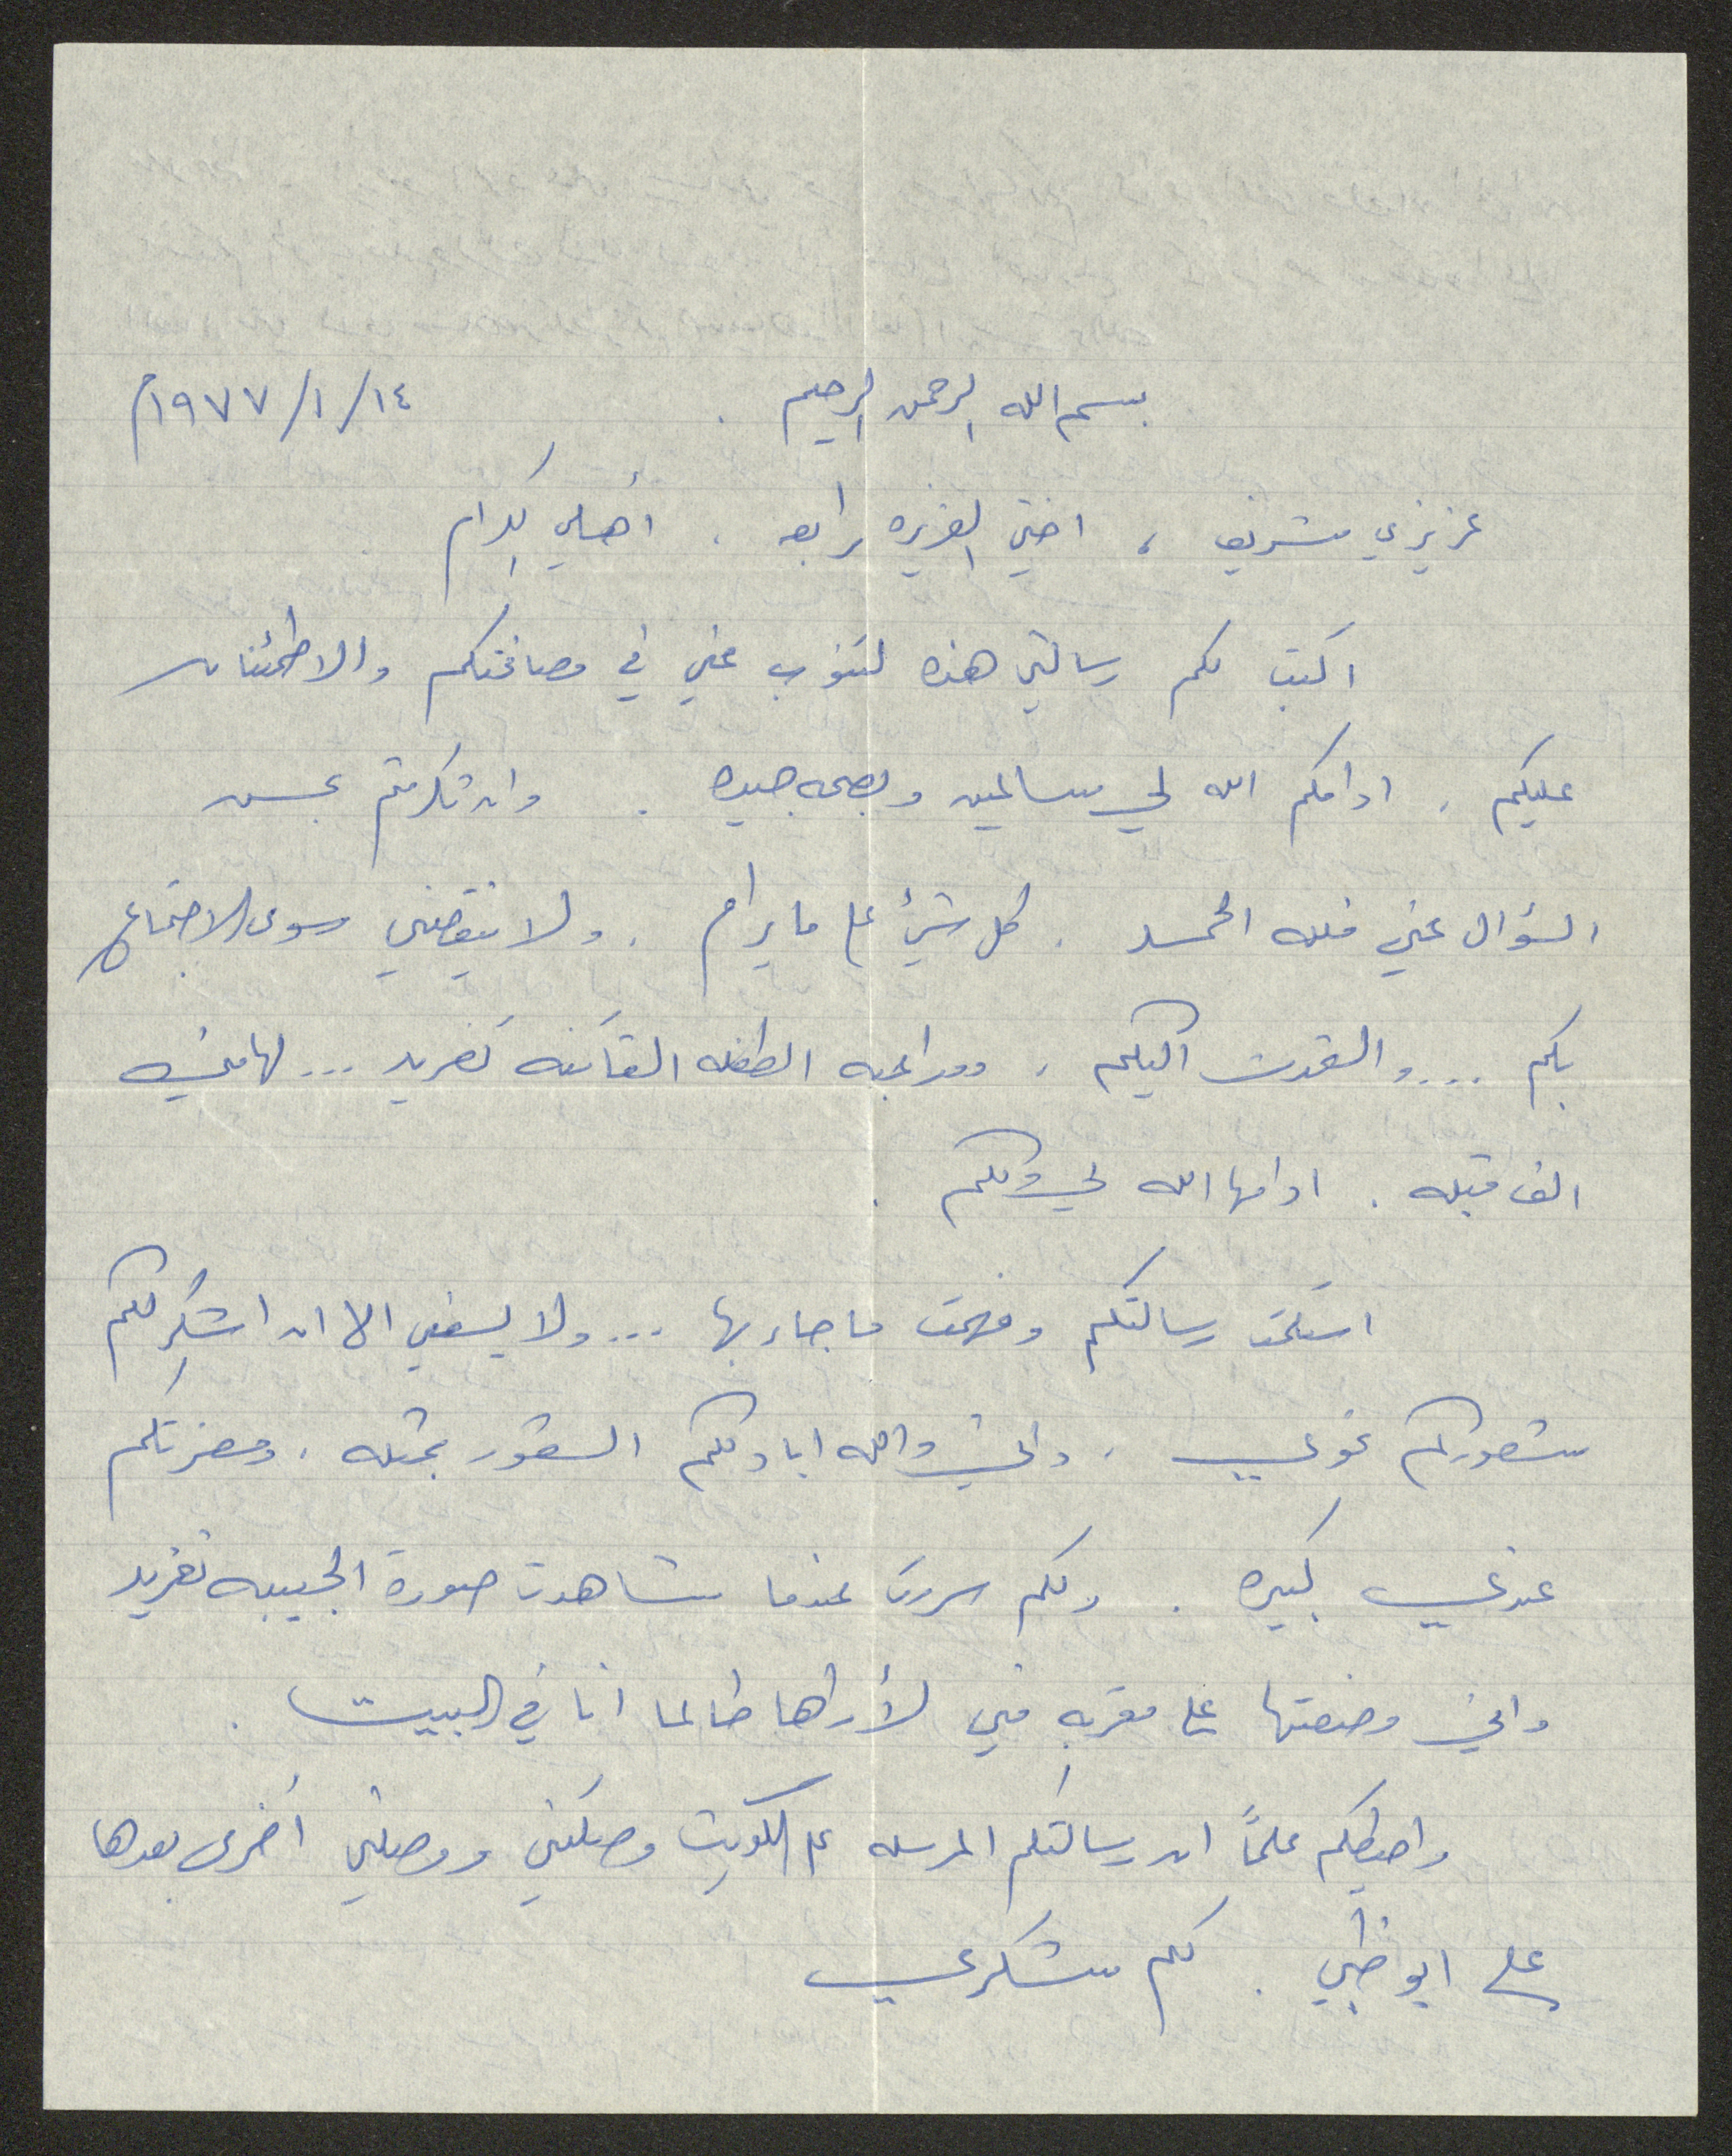 بسم الله الرحمن الرحيم . ١٤/١/١٩٧٧م
عزيزي شريف ، اختي العزيزه رابعه . أهلي الكرام .
اكتب لكم رسالتي هذه لتنوب عني في مصافحتكم والاطمئنان
عليكم . ادامكم الله لي سالمين وبصحه جيده . وان تكرمتم بحسن
السؤال عني فلله الحمد . كل شيئ على ما يرام . ولا ينقصني سوى الاجتماع
بكم .... والتحدث اليكم . ومداعبه الطفله الفاتنه تغريد ... لها مني
الف قبله . ادامها الله لي ولكم .
استلمت رسالتكم وفهمت ما جاء بها ... ولا يسعني الا ان اشكر لكم
شعوركم نحوي . واني والله ابادلكم الشعور بمثله . ومعزتكم
عندي كبيره . ولكم سررت عندما شاهدت صورة الحبيبه تغريد
واني وضعتها على مقربه مني لأراها طالما انا في البيت .
واحيطكم علماً ان رسالتكم المرسله على الكويت وصلتني ووصلتني أخرى بعدها
على ابو ظبي . لكم شكري